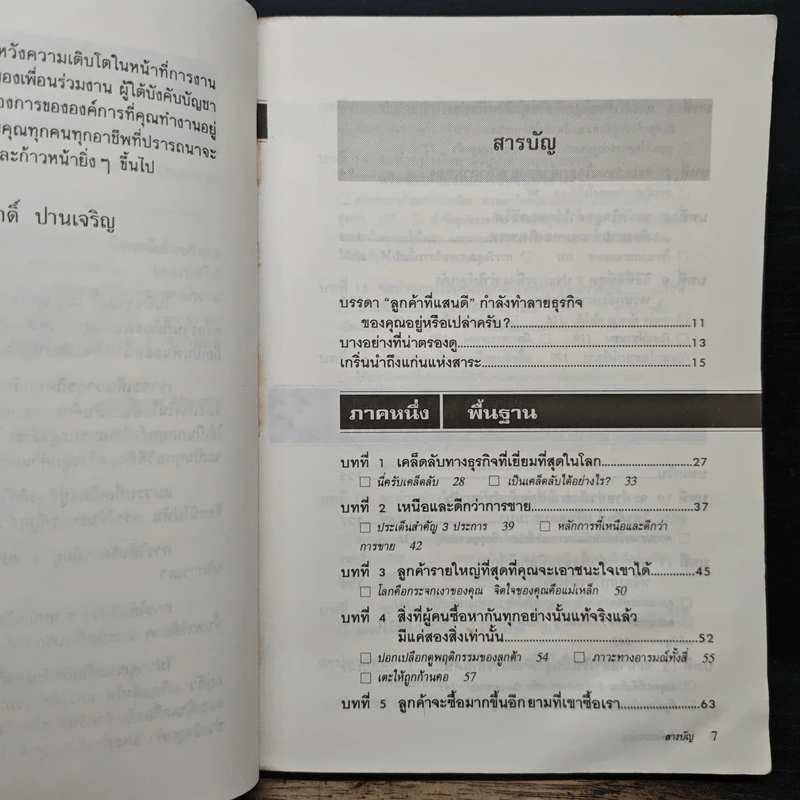 หวังความเติบโตในหน้าที่การงาน
ของเพื่อนร่วมงาน ผู้ใต้บังคับบัญชา
องการขององค์การที่คุณทำงานอยู่
คุณทุกคนทุกอาชีพที่ปรารถนาจะ
ละก้าวหน้ายิ่งๆ ขึ้นไป
ปานเจริญ
สารบัญ
บรรดา “ลูกค้าที่แสนดี” กำลังทำลายธุรกิจ
ของคุณอยู่หรือเปล่าครับ?...11
บางอย่างที่น่าตรองดู...13
เกริ่นนำถึงแก่นแห่งสาระ...15
ภาคหนึ่ง พื้นฐาน
บทที่ 1 เคล็ดลับทางธุรกิจที่เยี่ยมที่สุดในโลก...27
□ นี่ครับเคล็ดลับ 28 □ เป็นเคล็ดลับได้อย่างไร? 33
บทที่ 2 เหนือและดีกว่าการขาย...37
□ ประเด็นสำคัญ 3 ประการ 39 □ หลักการที่เหนือและดีกว่า
การขาย 42
บทที่ 3 ลูกค้ารายใหญ่ที่สุดที่คุณจะเอาชนะใจเขาได้...45
□ โลกคือกระจกเงาของคุณ จิตใจของคุณคือแม่เหล็ก 50
บทที่ 4 สิ่งที่ผู้คนซื้อหากันทุกอย่างนั้นแท้จริงแล้ว
มีแค่สองสิ่งเท่านั้น...52
□ ปอกเปลือกดูพฤติกรรมของลูกค้า 54 □ ภาวะทางอารมณ์ทั้งสี่ 55
□ เตะให้ถูกก้านคอ 57
บทที่ 5 ลูกค้าจะซื้อมากขึ้นอีก ยามที่เขาซื้อเรา...63
สารบัญ 7